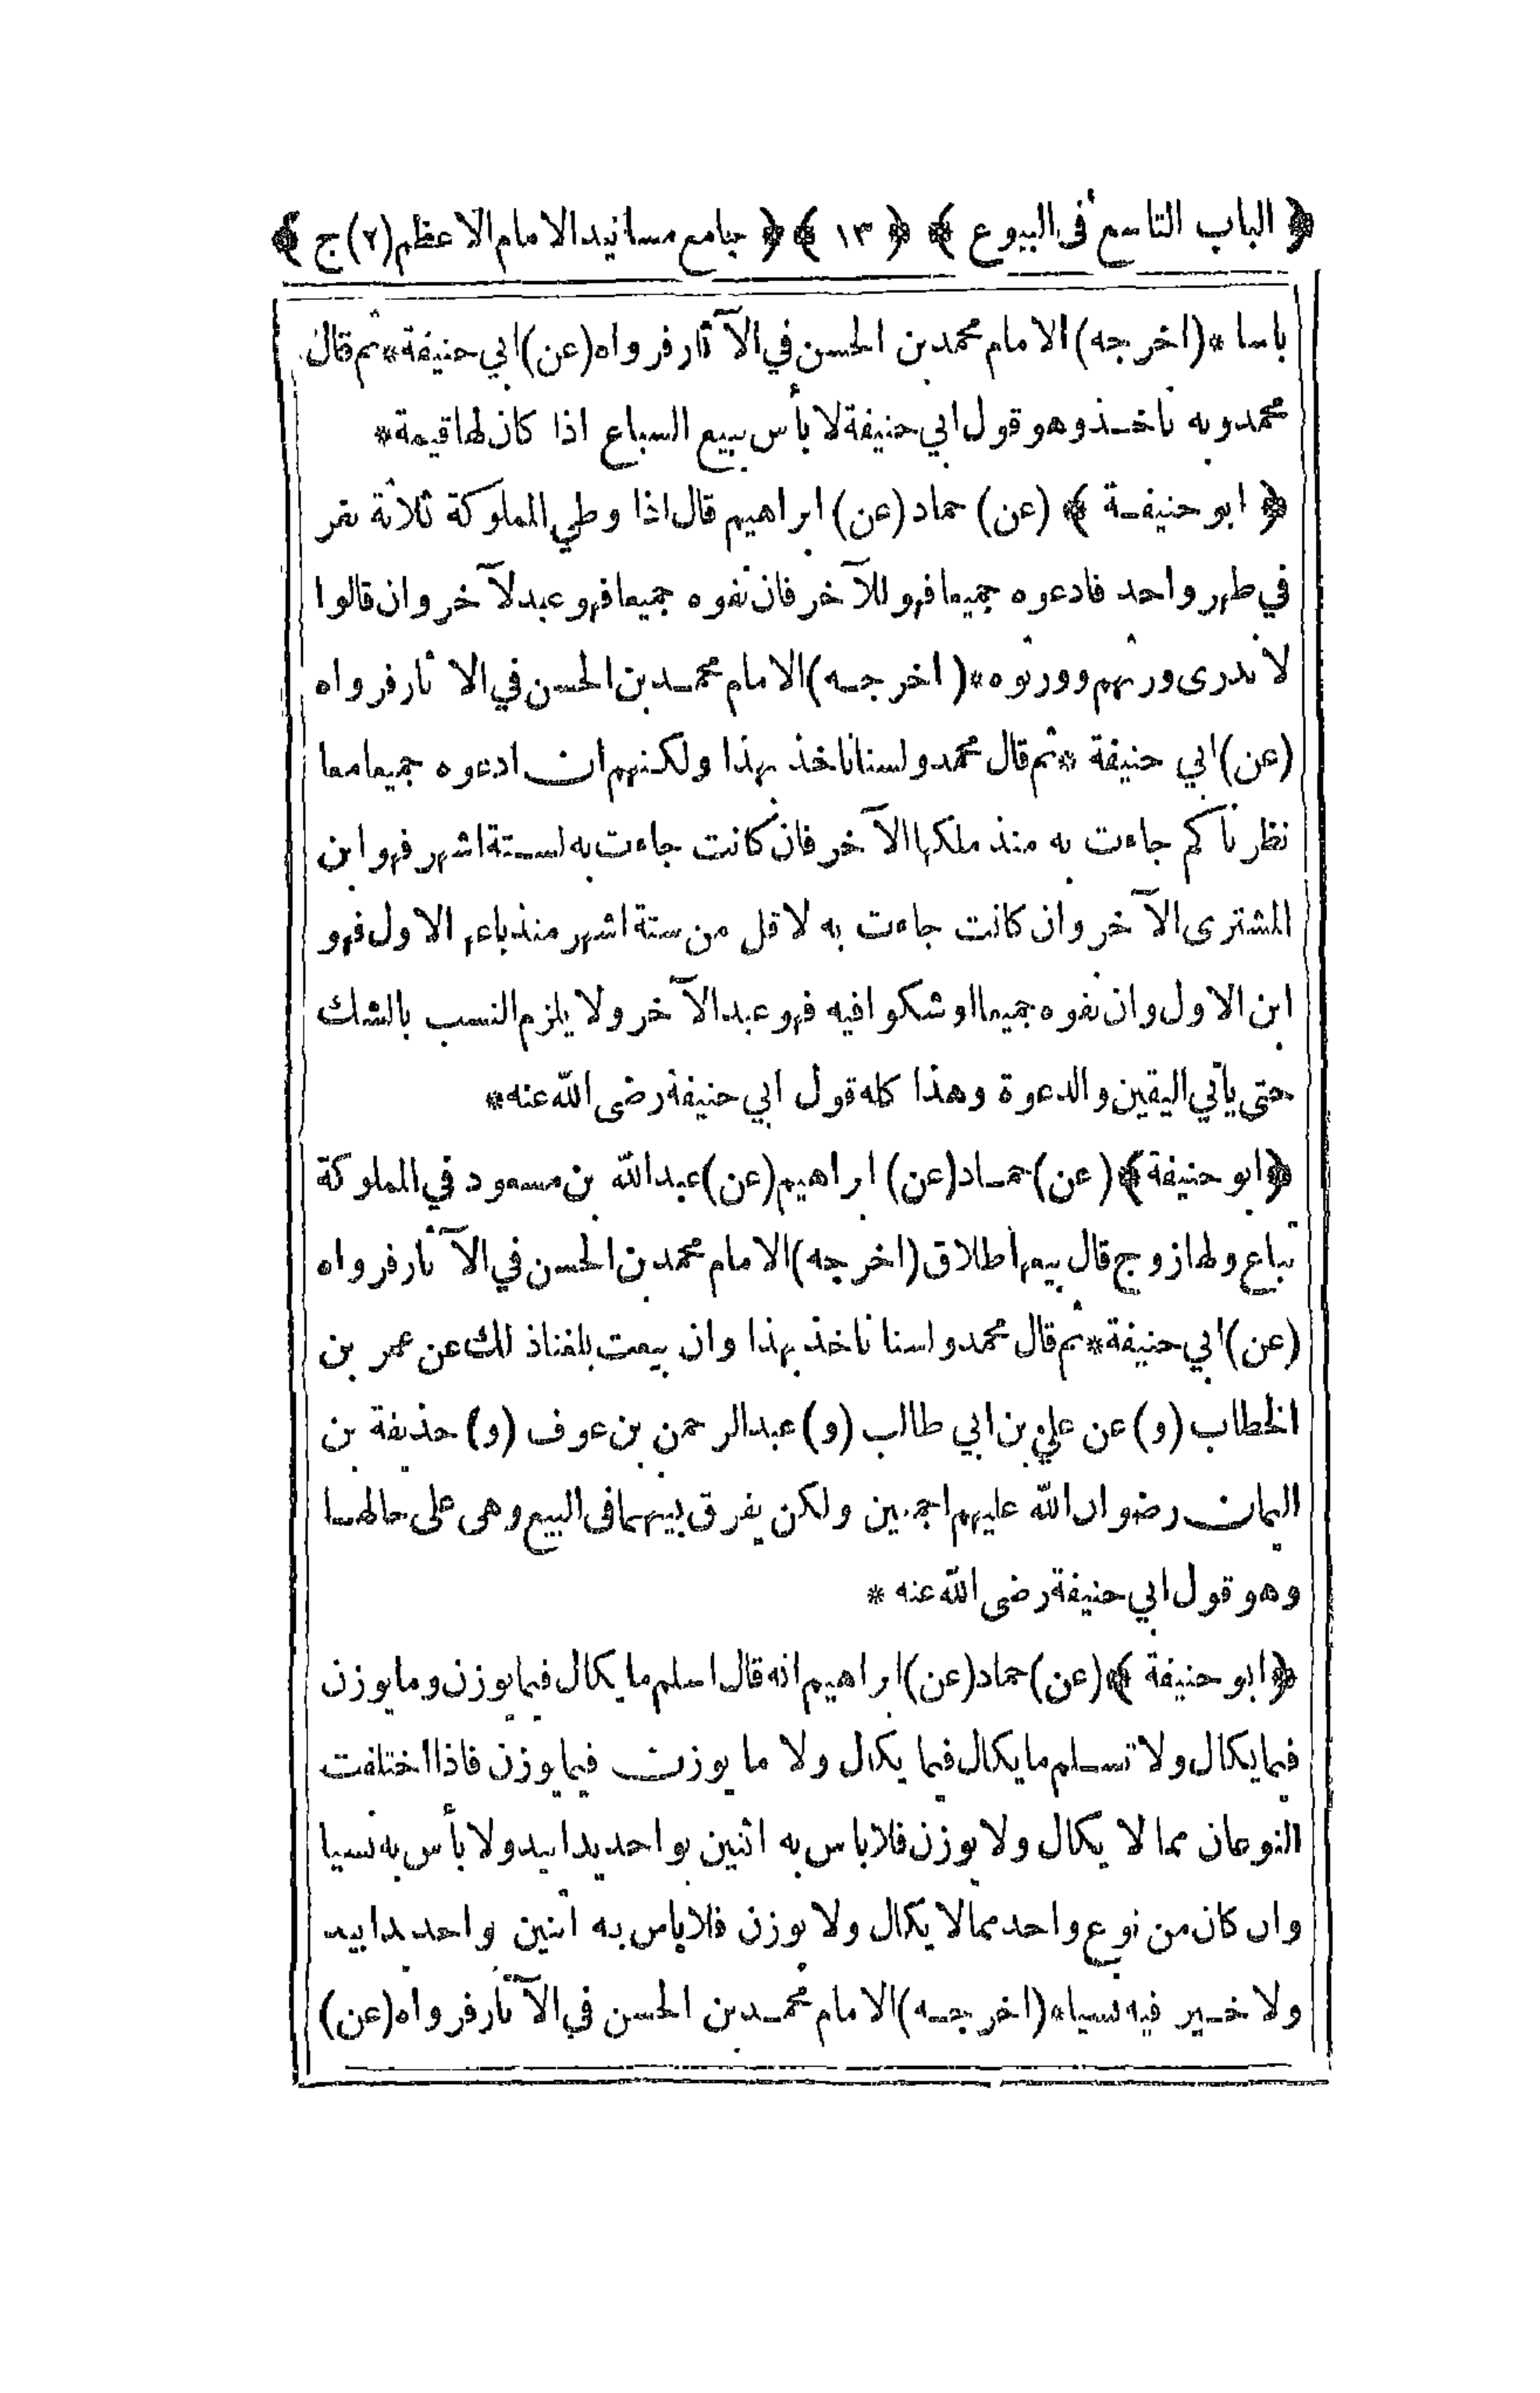 ﴿ الباب التاسع فى البيوع ﴾ ﴿ ١٣ ﴾ ﴿ جامع مسانيد الامام الاعظم (٢) ج ﴾
باسا * (اخرجه) الامام محمد بن الحسن في الآثار فرواه (عن) ابي حنيفة * ثم قال
محمد وبه ناخذ وهو قول ابي حنيفة لا بأس ببيع السباع اذا كان لها قيمة *
﴿ ابو حنيفة ﴾ (عن) حماد (عن) ابراهيم قال اذا وطي المملوكة ثلاثة نفر
في طهر واحد فادعوه جميعا فهو للآخر فان نفوه جميعا فهو عبد لآخر وان قالوا
لا ندرى ورثهم وورثوه * (اخرجه) الامام محمد بن الحسن في الاثار فرواه
(عن) ابي حنيفة * ثم قال محمد ولسنا ناخذ بهذا ولكنهم ان ادعوه جميعا معا
نظرنا كم جاءت به منذ ملكها الآخر فان كانت جاءت به لستة اشهر فهو ابن
المشترى الآخر وان كانت جاءت به لاقل من ستة اشهر منذ باعها الاول فهو
ابن الاول وان نفوه جميعا او شكوا فيه فهو عبد الآخر ولا يلزم النسب بالشك
حتى يأتي اليقين والدعوة وهذا كله قول ابي حنيفة رضى الله عنه *
﴿ ابو حنيفة ﴾ (عن) حماد (عن) ابراهيم (عن) عبد الله بن مسعود في المملوكة
تباع ولها زوج قال بيعها طلاق (اخرجه) الامام محمد بن الحسن في الآثار فرواه
(عن) ابي حنيفة * ثم قال محمد ولسنا ناخذ بهذا وان بيعت بلغنا ذلك عن عمر بن
الخطاب (و) عن علي بن ابي طالب (و) عبد الرحمن بن عوف (و) حذيفة بن
اليمان رضوان الله عليهم اجمعين ولكن يفرق بينهما فى البيع وهى على حالها
وهو قول ابي حنيفة رضى الله عنه *
﴿ ابو حنيفة ﴾ (عن) حماد (عن) ابراهيم انه قال اسلم ما يكال فيما يوزن وما يوزن
فيما يكال ولا تسلم ما يكال فيما يكال ولا ما يوزن فيما يوزن فاذا اختلفت
النوعان مما لا يكال ولا يوزن فلا باس به اثنين بواحد يدا بيد ولا بأس به نسيا
وان كان من نوع واحد مما لا يكال ولا يوزن فلا باس به اثنين بواحد يدا بيد
ولا خير فيه نسيا * (اخرجه) الامام محمد بن الحسن في الآثار فرواه (عن)